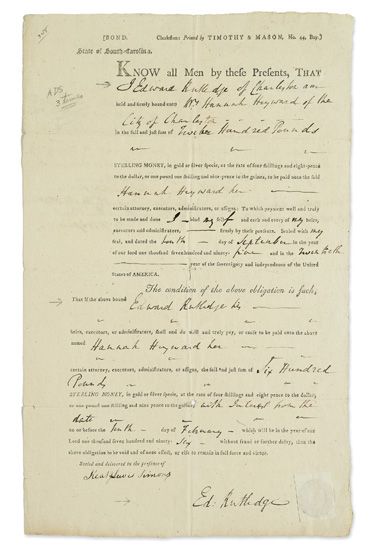 [BOND. Charleston: Printed by TIMOTHY & MASON, No. 44, Bay.]
State of South-Carolina.
ADS
3 times
KNOW all Men by these Presents, THAT
I Edward Rutledge of Charleston am
held and firmly bound unto Mrs Hannah Heyward of the
City of Charleston
in the full and just sum of Twelve Hundred Pounds
STERLING MONEY, in gold or silver specie, at the rate of four shillings and eight-pence
to the dollar, or one pound one shilling and nine-pence to the guinea, to be paid unto the said
Hannah Heyward her
certain attorney, executors, administrators, or assigns: To which payment well and truly
to be made and done I bind my self and each and every of my heirs,
executors and administrators, firmly by these presents. Sealed with my
seal, and dated the tenth day of September in the year
of our lord one thousand seven hundred and ninety- five and in the Twentieth
year of the sovereignty and independence of the United
States of AMERICA.
The condition of the above obligation is such,
That if the above bound Edward Rutledge his
heirs, executors, or administrators, shall and do well and truly pay, or cause to be paid unto the above
named Hannah Heyward her
certain attorney, executors, administrators, or assigns, the full and just sum of Six Hundred
Pounds
STERLING MONEY, in gold or silver specie, at the rate of four shillings and eight pence to the dollar,
or one pound one shilling and nine pence to the guinea, with Interest from the
date
on or before the Tenth day of February which will be in the year of our
Lord one thousand seven hundred and ninety- Six without fraud or further delay, then the
above obligation to be void and of none effect, or else to remain in full force and virtue.
Sealed and delivered in the presence of
Simons
Ed: Rutledge